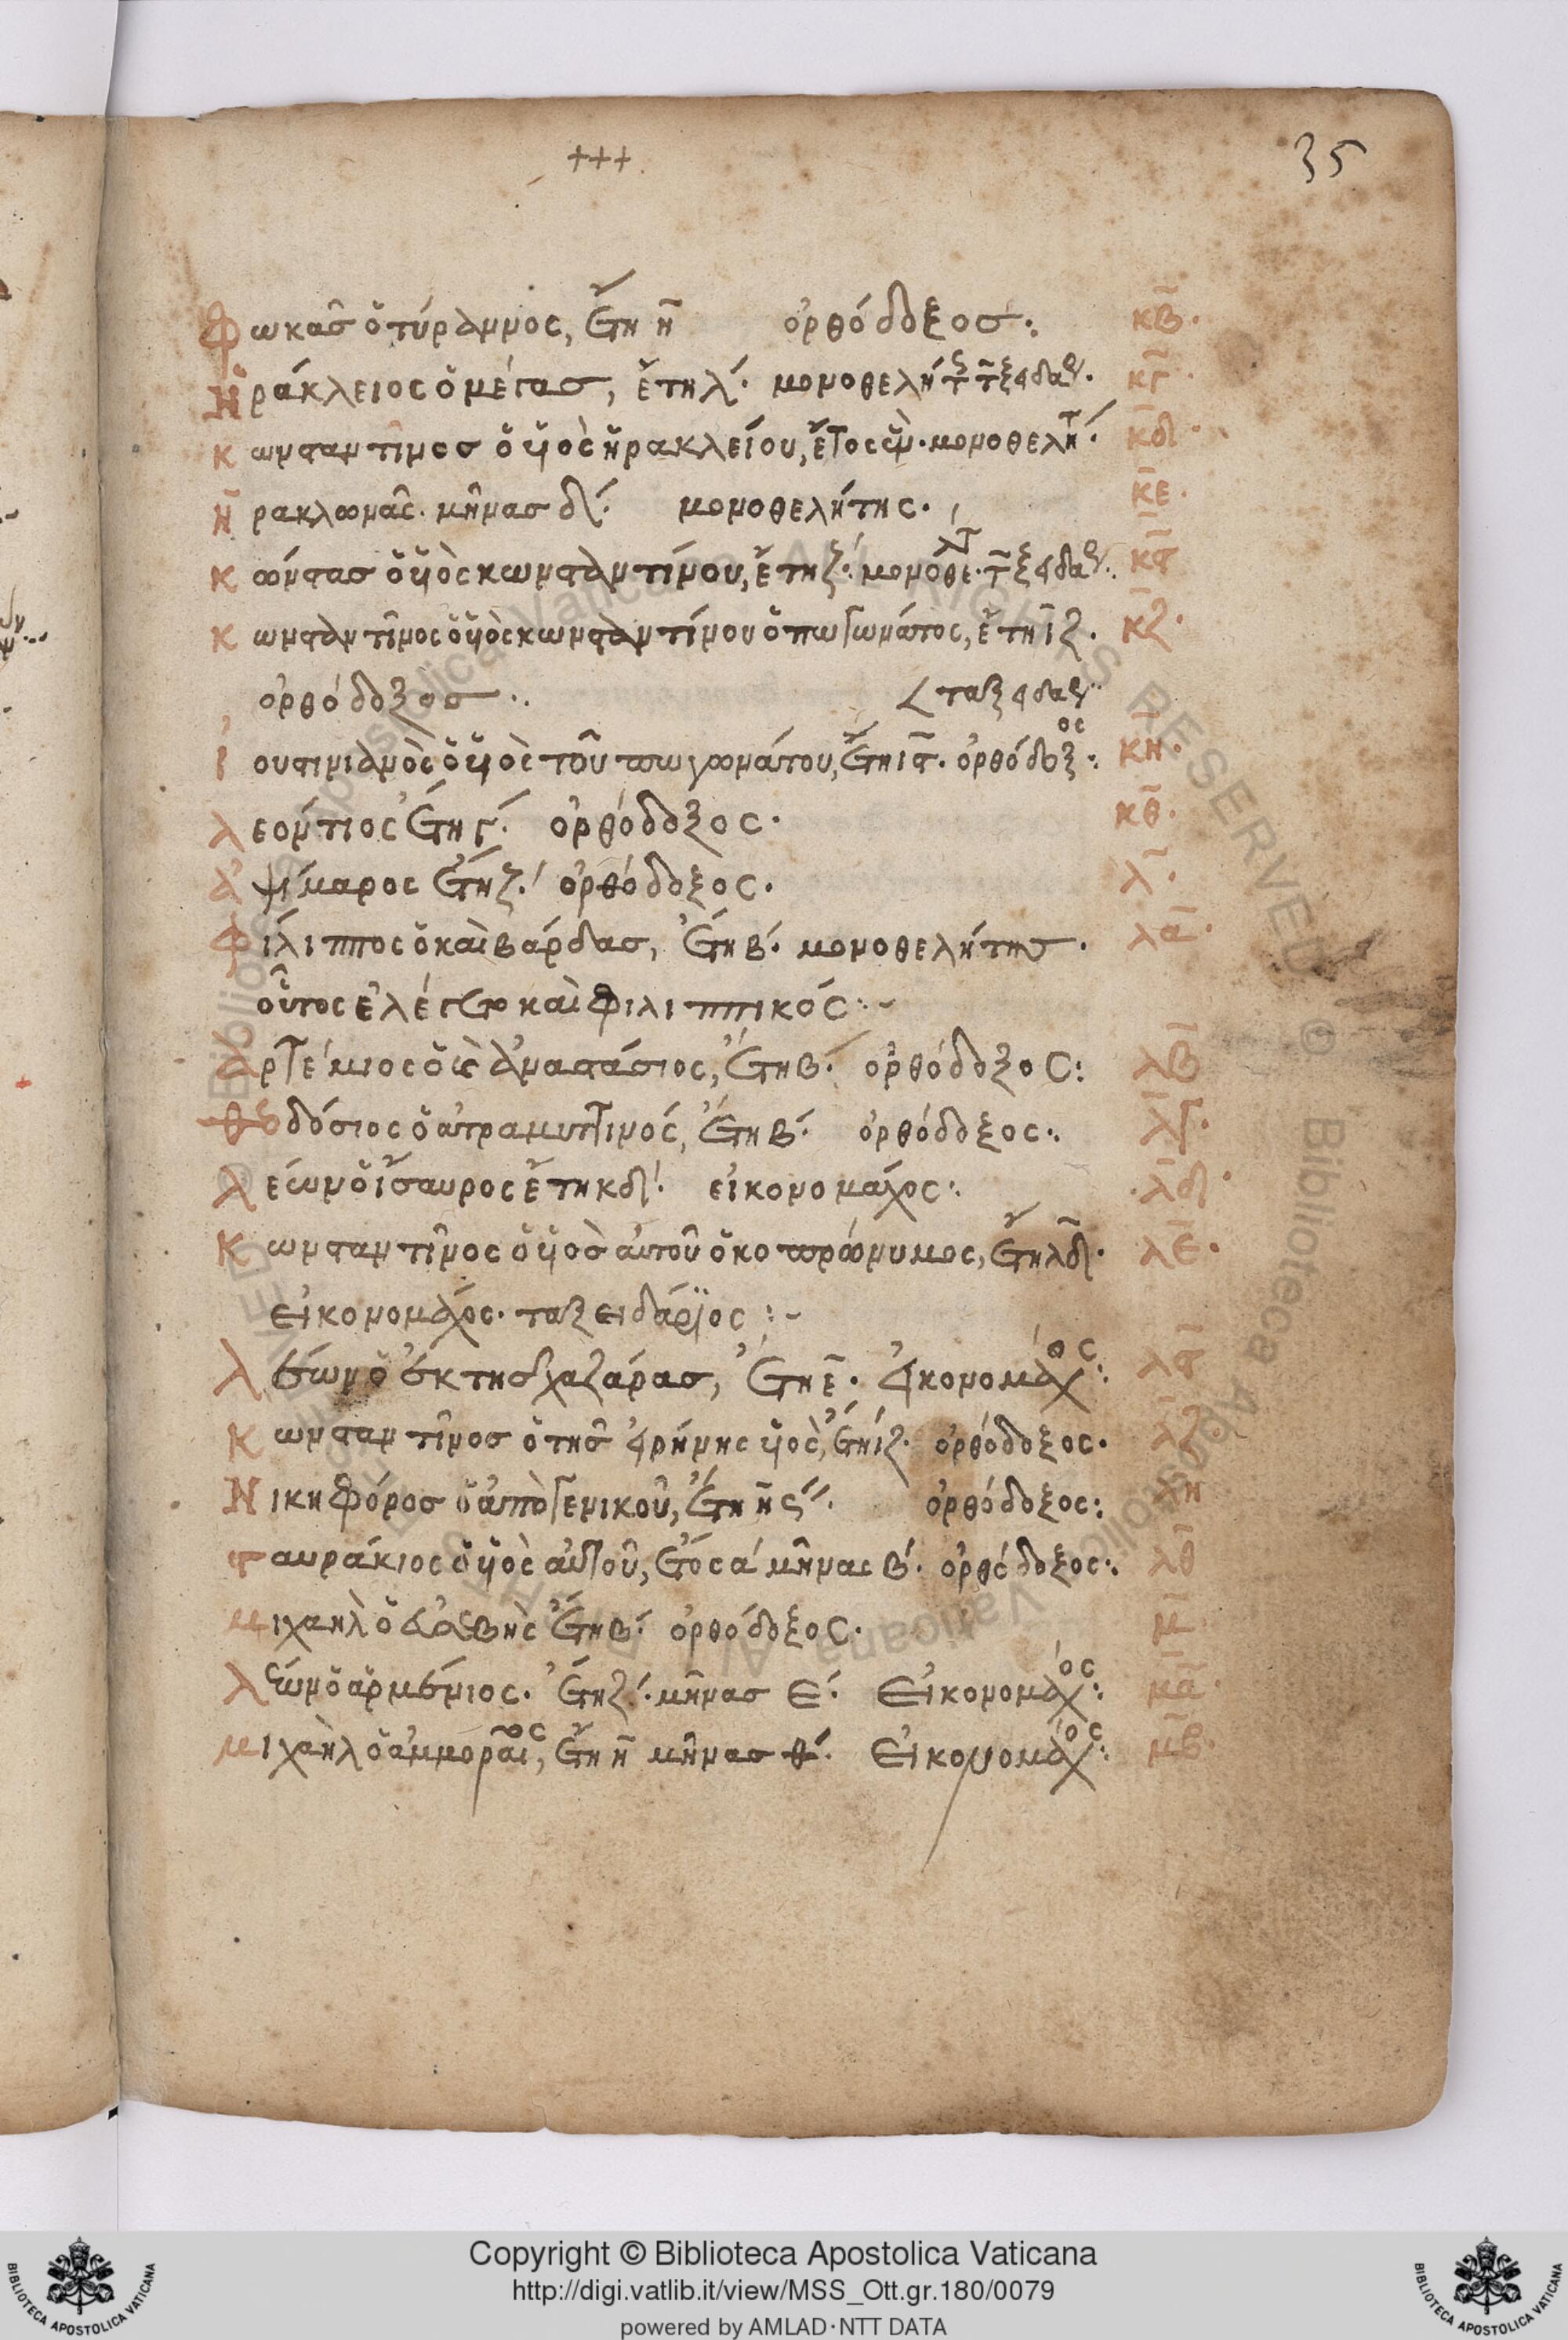 +++
35
Φωκᾶσ ὁ τύραννος, ἔτη η̄ ὀρθόδοξοσ: κβ̄.
Ἡράκλειος ὁ μέγασ, ἔτη λ´. μονοθελήτ κγ̄.
Κωνσταντῖνοσ ὁ ὑϊὸς ἡρακλείου, ἔτος μονοθελήτ κδ̄.
Ἡρακλωνᾶς. μῆνασ δ´. μονοθελήτης. κε̄.
Κώνστασ ὁ ὑϊὸς κωνσταντίνου, ἔτη ζ´. μονοθελτ κϛ̄
Κωνσταντῖνος ὁ ὑϊὸς κωνσταντίνου ὁ πωγωνάτος, ἔτη ιζ. κζ̄.
ὀρθόδοξοσ
Ἰουστινιανὸς ὁ ὑϊὸς τοῦ πωγωνάτου, ἔτη ιϛ̄. ὀρθόδοξος: κη̄.
Λεόντιος ἔτη γ´. ὀρθόδοξος. κθ̄.
Ἀψίμαρος ἔτη ζ´. ὀρθόδοξος. λ̄.
Φίλιππος ὁ καὶ βάρδασ, ἔτη β´. μονοθελήτησ. λᾱ.
οὗτος ἐλέγετο καὶ φιλιππικός:~
Ἀρτέμιος ὁ κς ἀναστάσιος, ἔτη β´. ὀρθόδοξος: λβ̄
Θεοδόσιος ὁ ἀτραμυττινός, ἔτη β´. ὀρθόδοξος: λγ̄.
Λέων ὁ ἴσαυρος ἔτη κδ´. εἰκονομάχος: .λδ̄.
Κωνσταντῖνος ὁ ὑϊὸσ αὐτοῦ ὁ κοπρώνυμος, ἔτη λδ̄. λε̄.
εἰκονομάχος. ταξειδάρϊος:~
Λέων ὁ ἐκ τησ χαζάρασ, ἔτη ε̄. εἰκονομάχος: λϛ̄
Κωνσταντῖνοσ ὁ τῆσ εἰρήνης ὑϊὸς, ἔτη ιζ. ὀρθόδοξος. λζ̄.
Νικηφόροσ ὁ ἀπὸ γενικοῦ, ἔτη η̄ ὀρθόδοξος: λη
Σταυράκιος ὁ ὑϊὸς αὐτοῦ, ἔτος α´ μῆνας β´. ὀρθόδοξος: λθ̄
Μιχαὴλ ὁ εὐσεβὴς ἔτη β´. ὀρθόδοξος. μ̄.
Λέων ὁ ἀρμένιος. ἔτη ζ´. μῆνασ ε´. εἰκονομάχος: μᾱ.
Μιχαὴλ ὁ ἀμμοραῖος, ἔτη η̄ μῆνασ θ´. εἰκονομάχος: μβ̄.
Copyright © Biblioteca Apostolica Vaticana
http://digi.vatlib.it/view/MSS_Ott.gr.180/0079
powered by AMLAD·NTT DATA